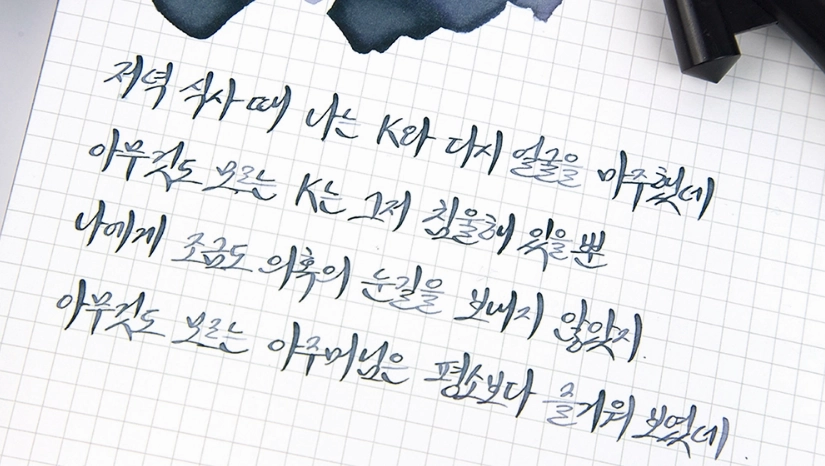 저녁 식사 때 나는 K와 다시 얼굴을 마주했네
아무것도 모르는 K는 그저 침울해 있을 뿐
나에게 조금도 의혹의 눈길을 보내지 않았지.
아무것도 모르는 아주머님은 평소보다 즐거워 보였네.